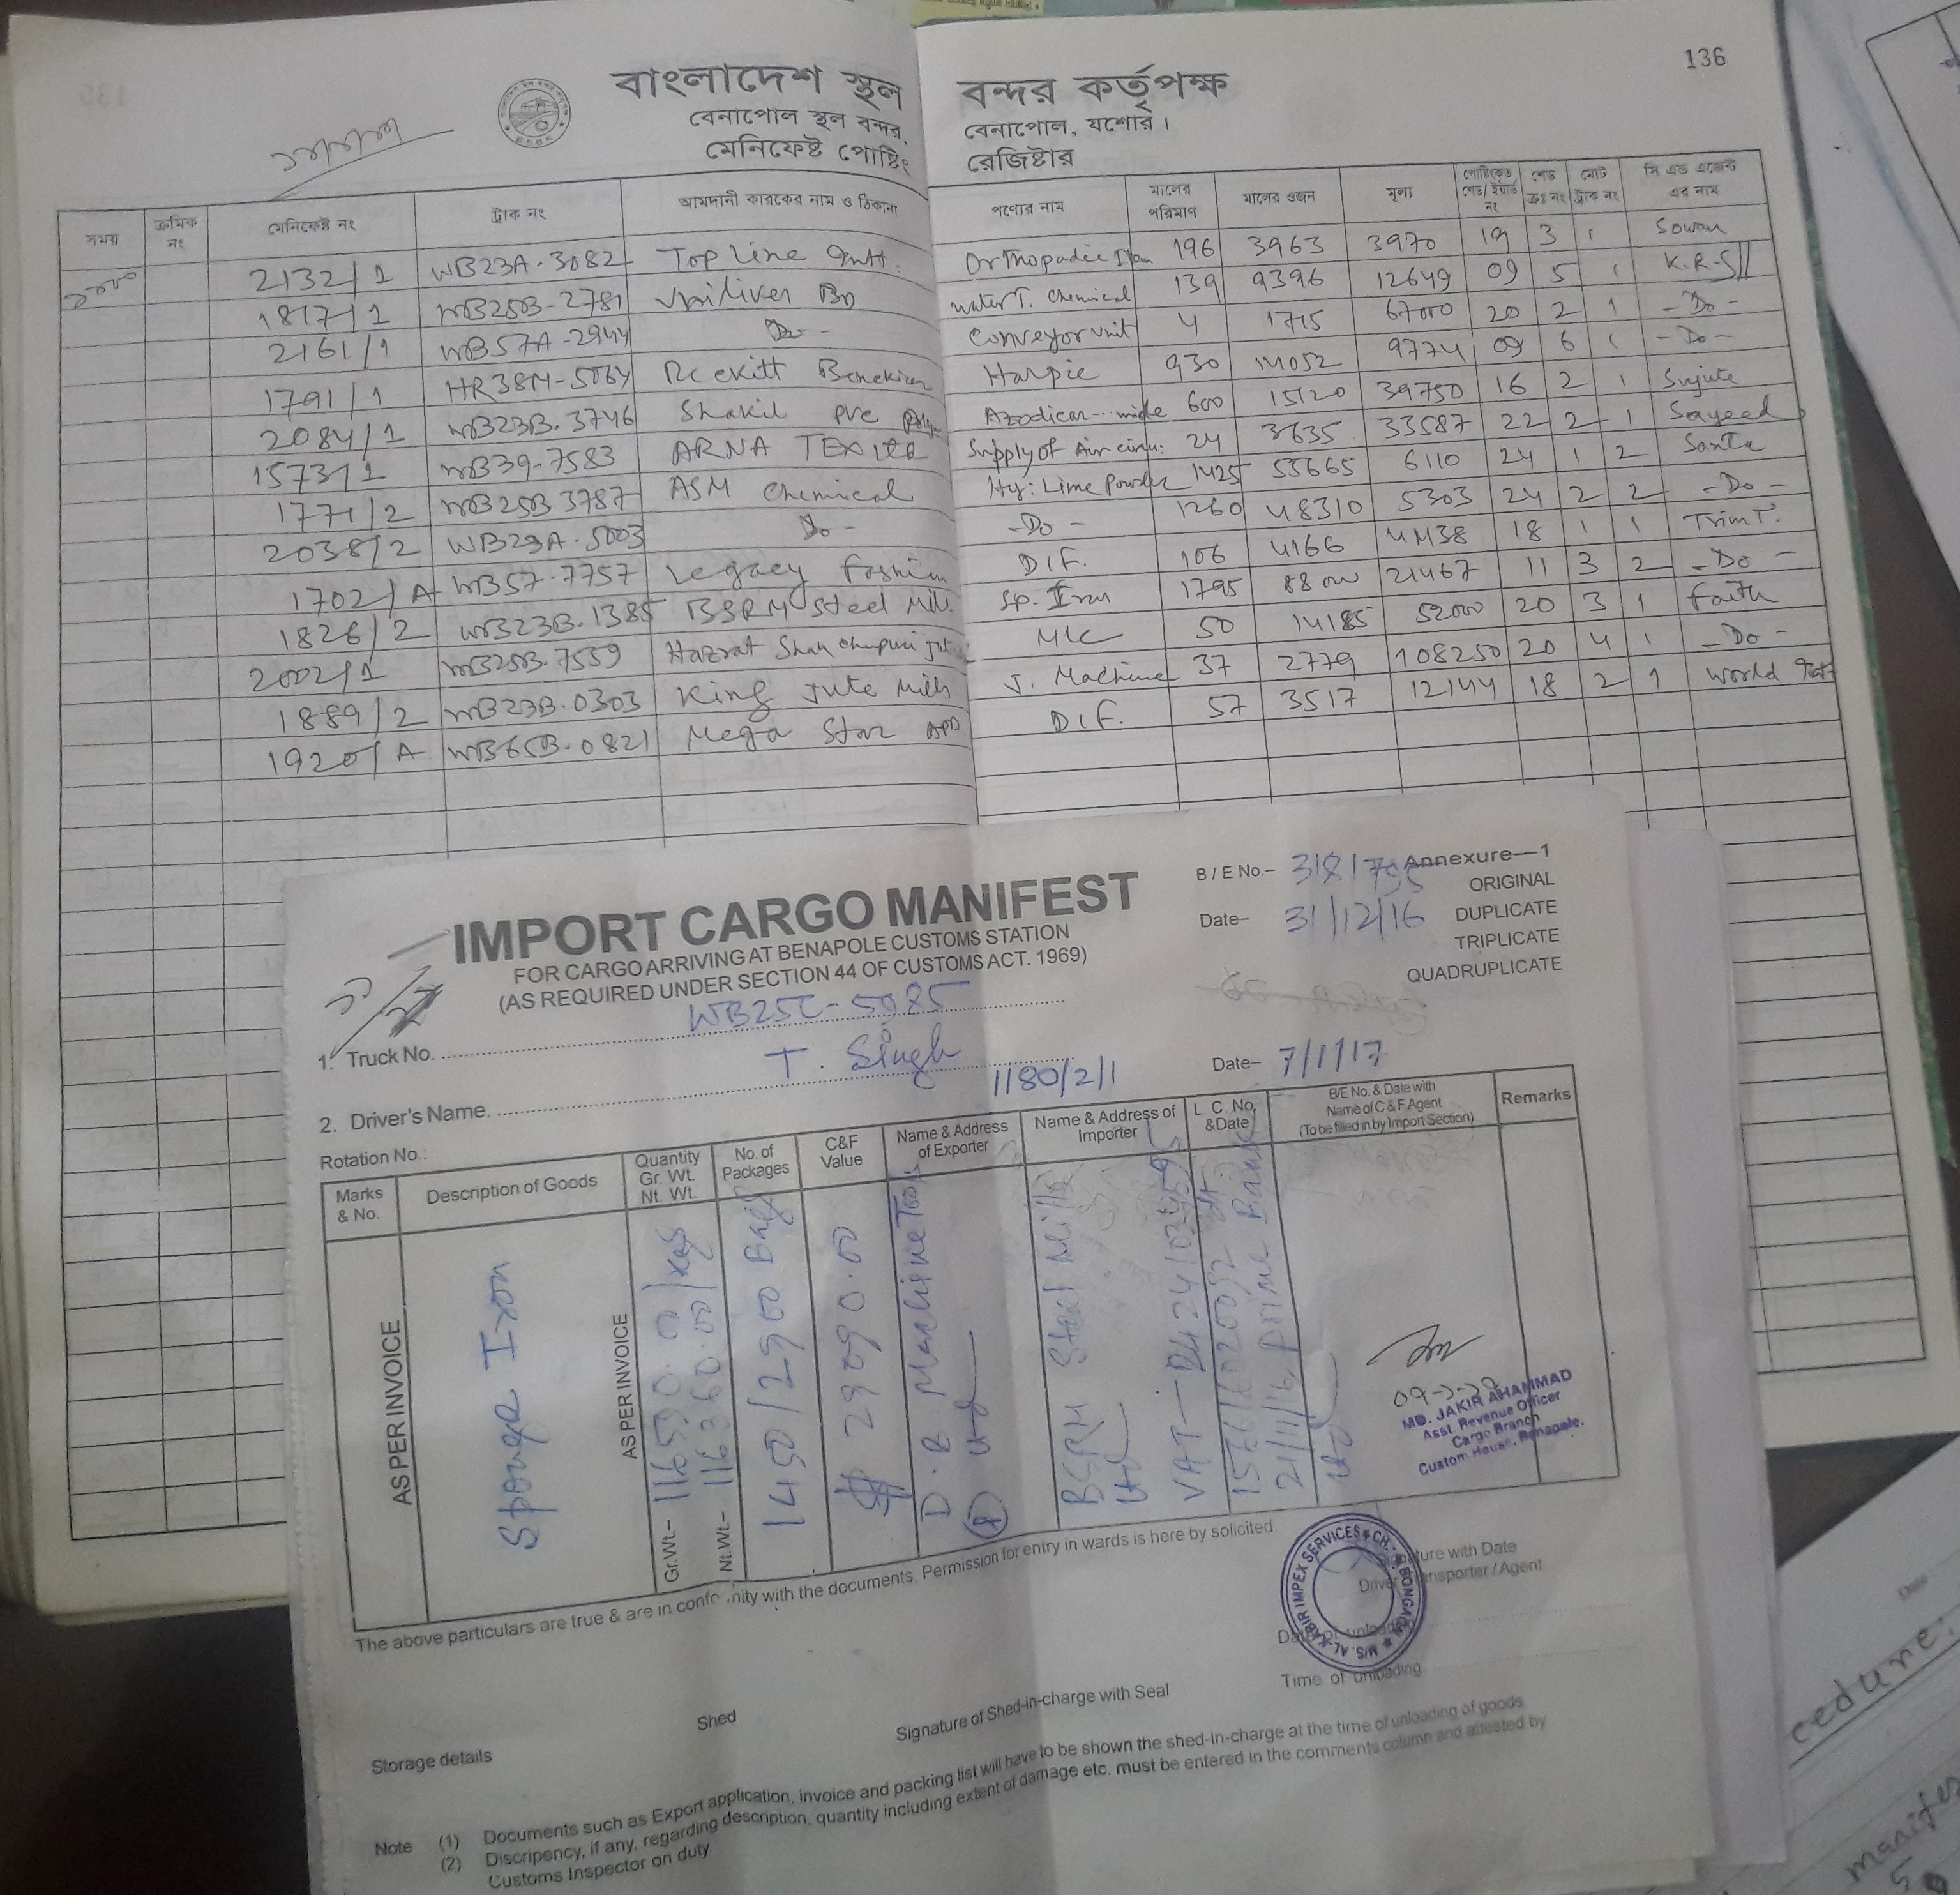 136
বাংলাদেশ স্থল বন্দর কর্তৃপক্ষ
বেনাপোল স্থল বন্দর, বেনাপোল, যশোর।
মেনিফেষ্ট পোষ্টিং রেজিষ্টার
সময় ক্রমিক নং মেনিফেষ্ট নং ট্রাক নং আমদানী কারকের নাম ও ঠিকানা পণ্যের নাম মালের পরিমাণ মালের ওজন মূল্য পোষ্টিংকৃত শেড/ইয়ার্ড নং শেড ক্রঃ নং মোট ট্রাক নং সি এন্ড এজেন্ট এর নাম
2132/1 WB23A-3082 Top Line Orthopadic 196 3963 3970 19 3 1 Sowan
1817/1 WB25B-2781 Uniliver BD Water T. Chemical 139 9396 12649 09 5 1 K.R.S
2161/1 WB57A-2944 Do - Conveyor unit 4 1715 67000 20 2 1 -Do-
1791/1 HR38M-5064 Reckitt Benekier Harpic 930 14052 9774 09 6 1 -Do-
2084/1 WB23B.3746 Shakil pvc 600 15120 39750 16 2 1 Sujute
1573/1 WB39-7583 ARNA TEXILE Supply of Air 24 3635 33587 22 2 1 Sayeed
1771/2 WB25B 3787 ASM Chemical Hy: Lime Powder 1425 55665 6110 24 1 2 Santa
2038/2 WB29A.5003 Do - -Do- 1260 48310 5303 24 2 2 -Do-
1702/A WB57.7757 Legacy Fashion D/F. 106 4166 18 1 1 Trim T.
1826/2 WB23B.1385 BSRM Steel Mill. Sp. Iron 1795 21467 11 3 2 -Do-
2002/1 WB25B.7559 Hazrat Shah 50 14185 52000 20 3 1 Faith
1889/2 WB23B.0303 King Jute Mills J. Machine 37 2779 108250 20 4 1 -Do-
1920/A WB65B-0821 Mega Star APP D/F. 57 3517 12144 18 2 1 World
IMPORT CARGO MANIFEST
FOR CARGO ARRIVING AT BENAPOLE CUSTOMS STATION
(AS REQUIRED UNDER SECTION 44 OF CUSTOMS ACT. 1969)
B / E No.– Annexure—1
ORIGINAL
Date– 31/12/16 DUPLICATE
TRIPLICATE
QUADRUPLICATE
1. Truck No. WB25C-5085
2. Driver's Name. T. Singh
Rotation No.: 1180/2/1 Date– 7/1/17
Marks & No. Description of Goods Quantity Gr. Wt. Nt. Wt. No. of Packages C&F Value Name & Address of Exporter Name & Address of Importer L. C. No, &Date B/E No. & Date with Name of C & F Agent (To be filled in by Import Section) Remarks
AS PER INVOICE
Sponge Iron
AS PER INVOICE
Gr.Wt.– 116590.00/kgs
Nt.Wt.– 116360.00/kgs
1450/2900 Bags
$ 29090.00
D.R Machine Tools
Ltd
BSRM Steel Mills
Ltd
21/11/16, Prime Bank
Ltd
MD. JAKIR AHAMMAD
Asst. Revenue Officer
Cargo Branch
Custom House, Benapole.
The above particulars are true & are in conformity with the documents. Permission for entry in wards is here by solicited
M/S. AL-KABIR IMPEX SERVICES ★ CH. - BONGAON ★
Signature with Date
Driver / Transporter / Agent
Date of unloading
Time of unloading
Storage details Shed Signature of Shed-in-charge with Seal
Note (1) Documents such as Export application, invoice and packing list will have to be shown the shed-in-charge at the time of unloading of goods
(2) Discripency, if any, regarding description, quantity including extent of damage etc. must be entered in the comments column and attested by
Customs Inspector on duty
Date
cedure:
manifes